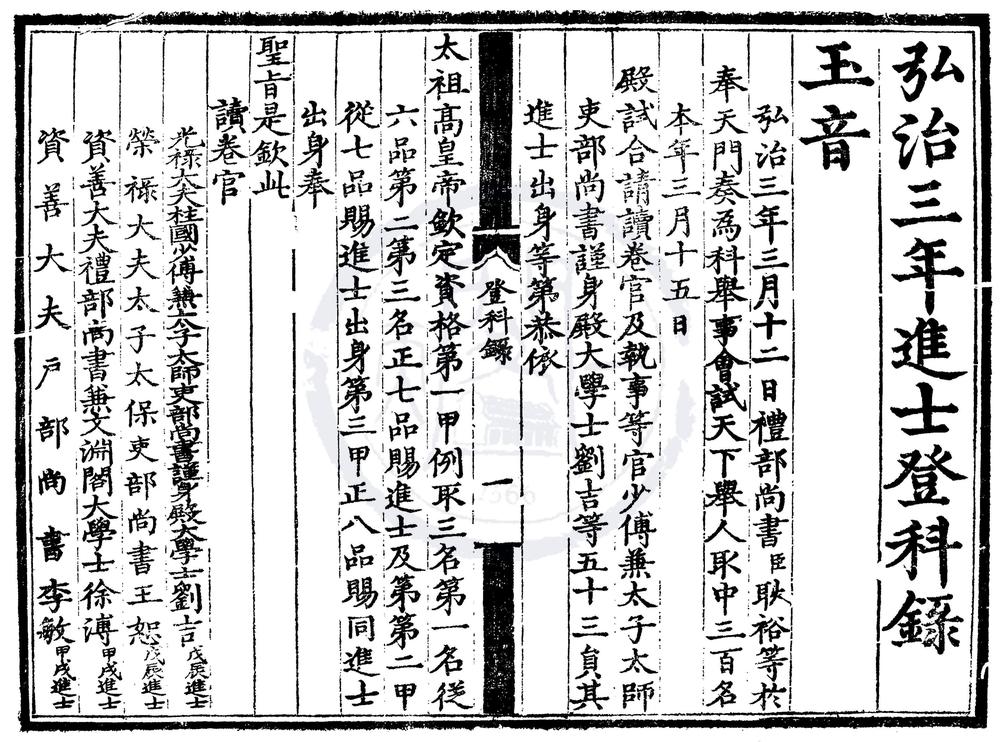 弘治三年進士登科錄
玉音
弘治三年三月十二日禮部尚書臣耿裕等於
奉天門奏爲科舉事會試天下舉人取中三百名
本年三月十五日
殿試合請讀卷官及執事等官少傅兼太子太師
吏部尚書謹身殿大學士劉吉等五十三員其
進士出身等第恭依
登科錄
一
太祖高皇帝欽定資格第一甲例取三名第一名從
六品第二第三名正七品賜進士及第第二甲
從七品賜進士出身第三甲正八品賜同進士
出身奉
聖旨是欽此
讀卷官
光祿大夫柱國少傅兼太子太師吏部尚書謹身殿大學士劉吉戊辰進士
榮祿大夫太子太保吏部尚書王恕戊辰進士
資善大夫禮部尚書兼文淵閣大學士徐溥甲戌進士
資善大夫戶部尚書李敏甲戌進士